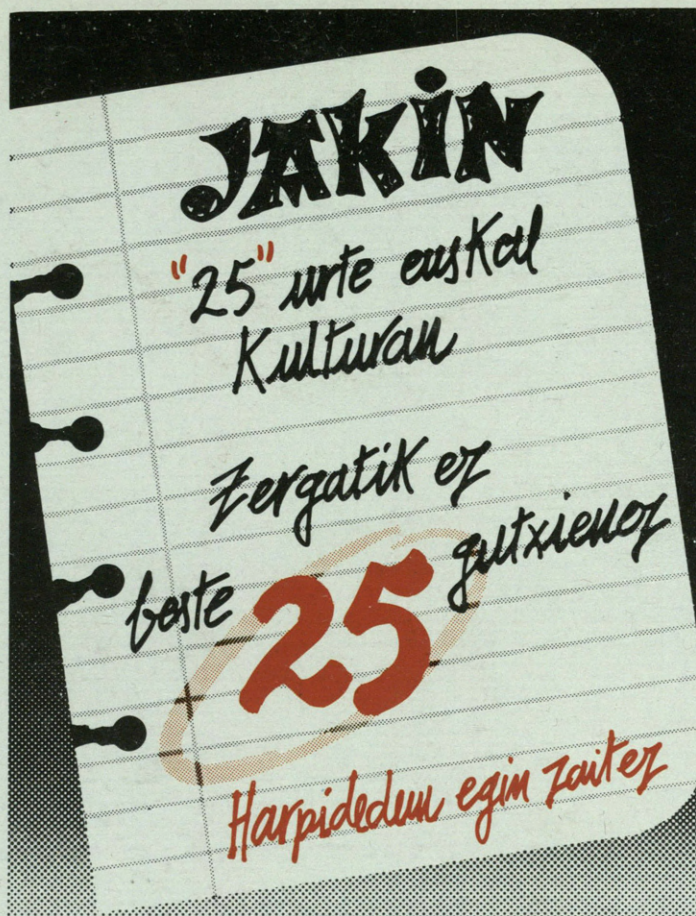 JAKIN
"25" urte euskal
Kulturan
Zergatik ez
beste 25 gutxienez
Harpidedun egin zaitez